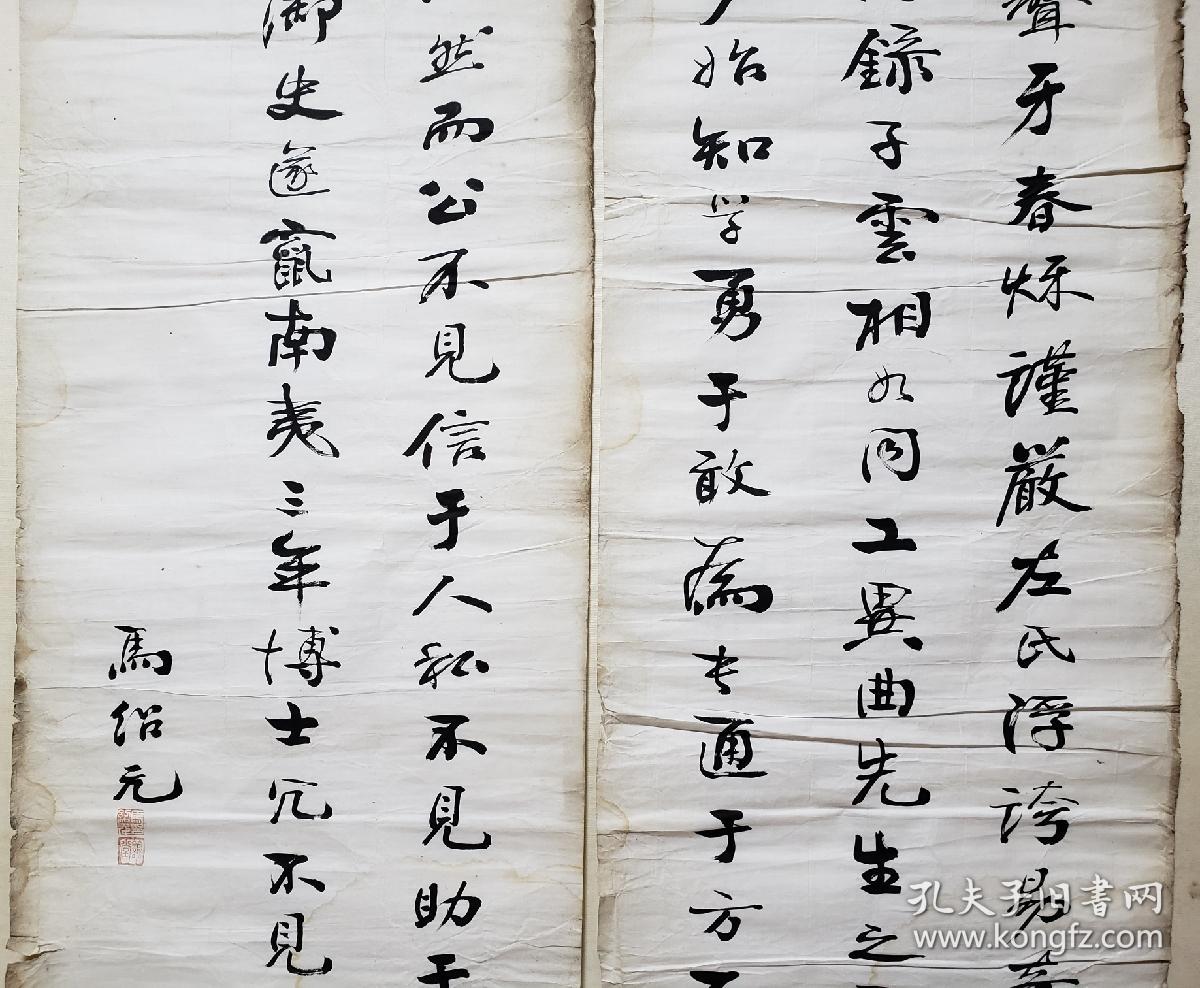 聱牙春秋謹嚴左氏浮誇易奇
錄子雲相如同工異曲先生之
始知学勇于敢為長通于方
然而公不見信于人私不見助于
御史遂竄南夷三年博士冗不見
馬紹元
孔夫子旧书网
www.kongfz.com